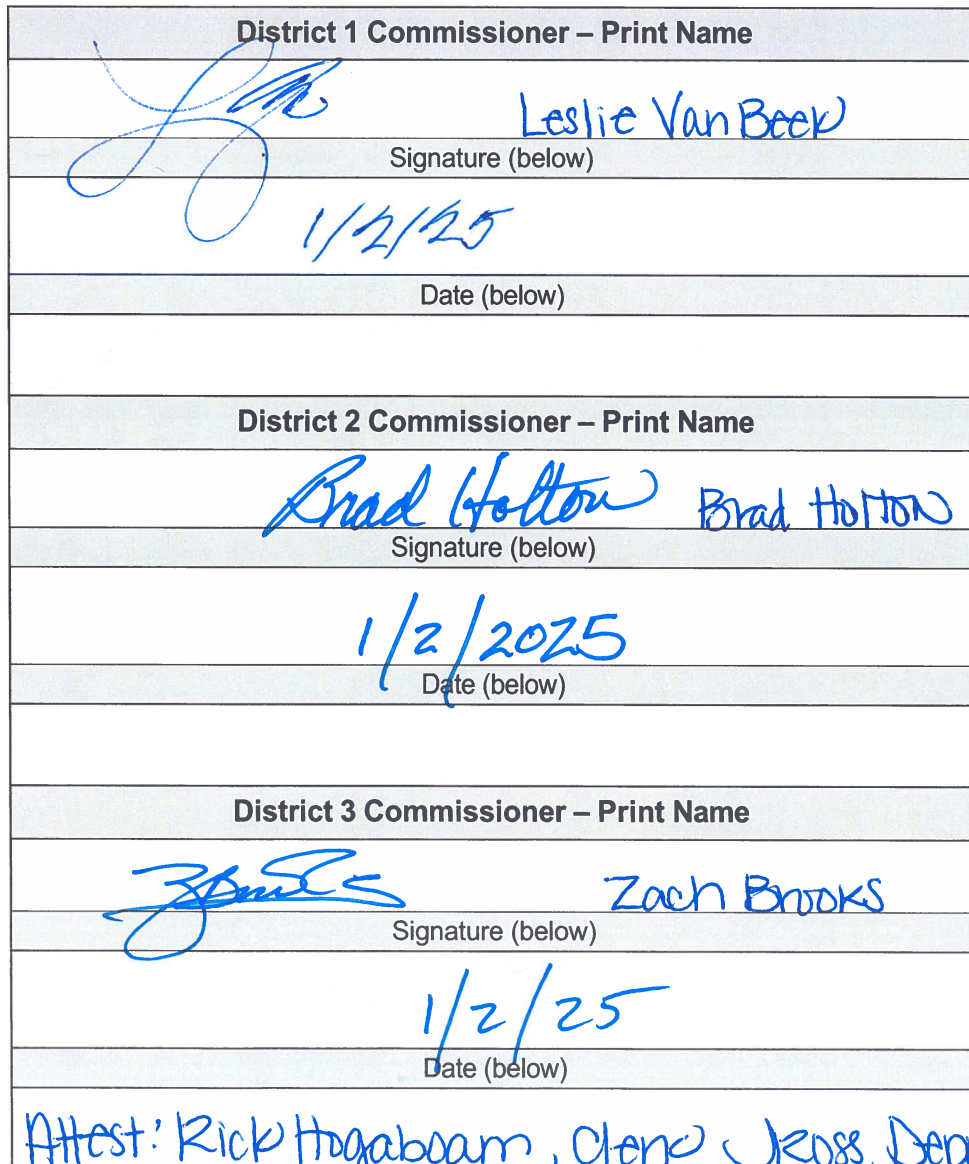 District 1 Commissioner – Print Name
Leslie Van Beek
Signature (below)
1/2/25
Date (below)
District 2 Commissioner – Print Name
Brad Holton Brad Holton
Signature (below)
1/2/2025
Date (below)
District 3 Commissioner – Print Name
Zach Brooks
Signature (below)
1/2/25
Date (below)
Attest: Rick Hogaboam, Clerk JRoss, Dep